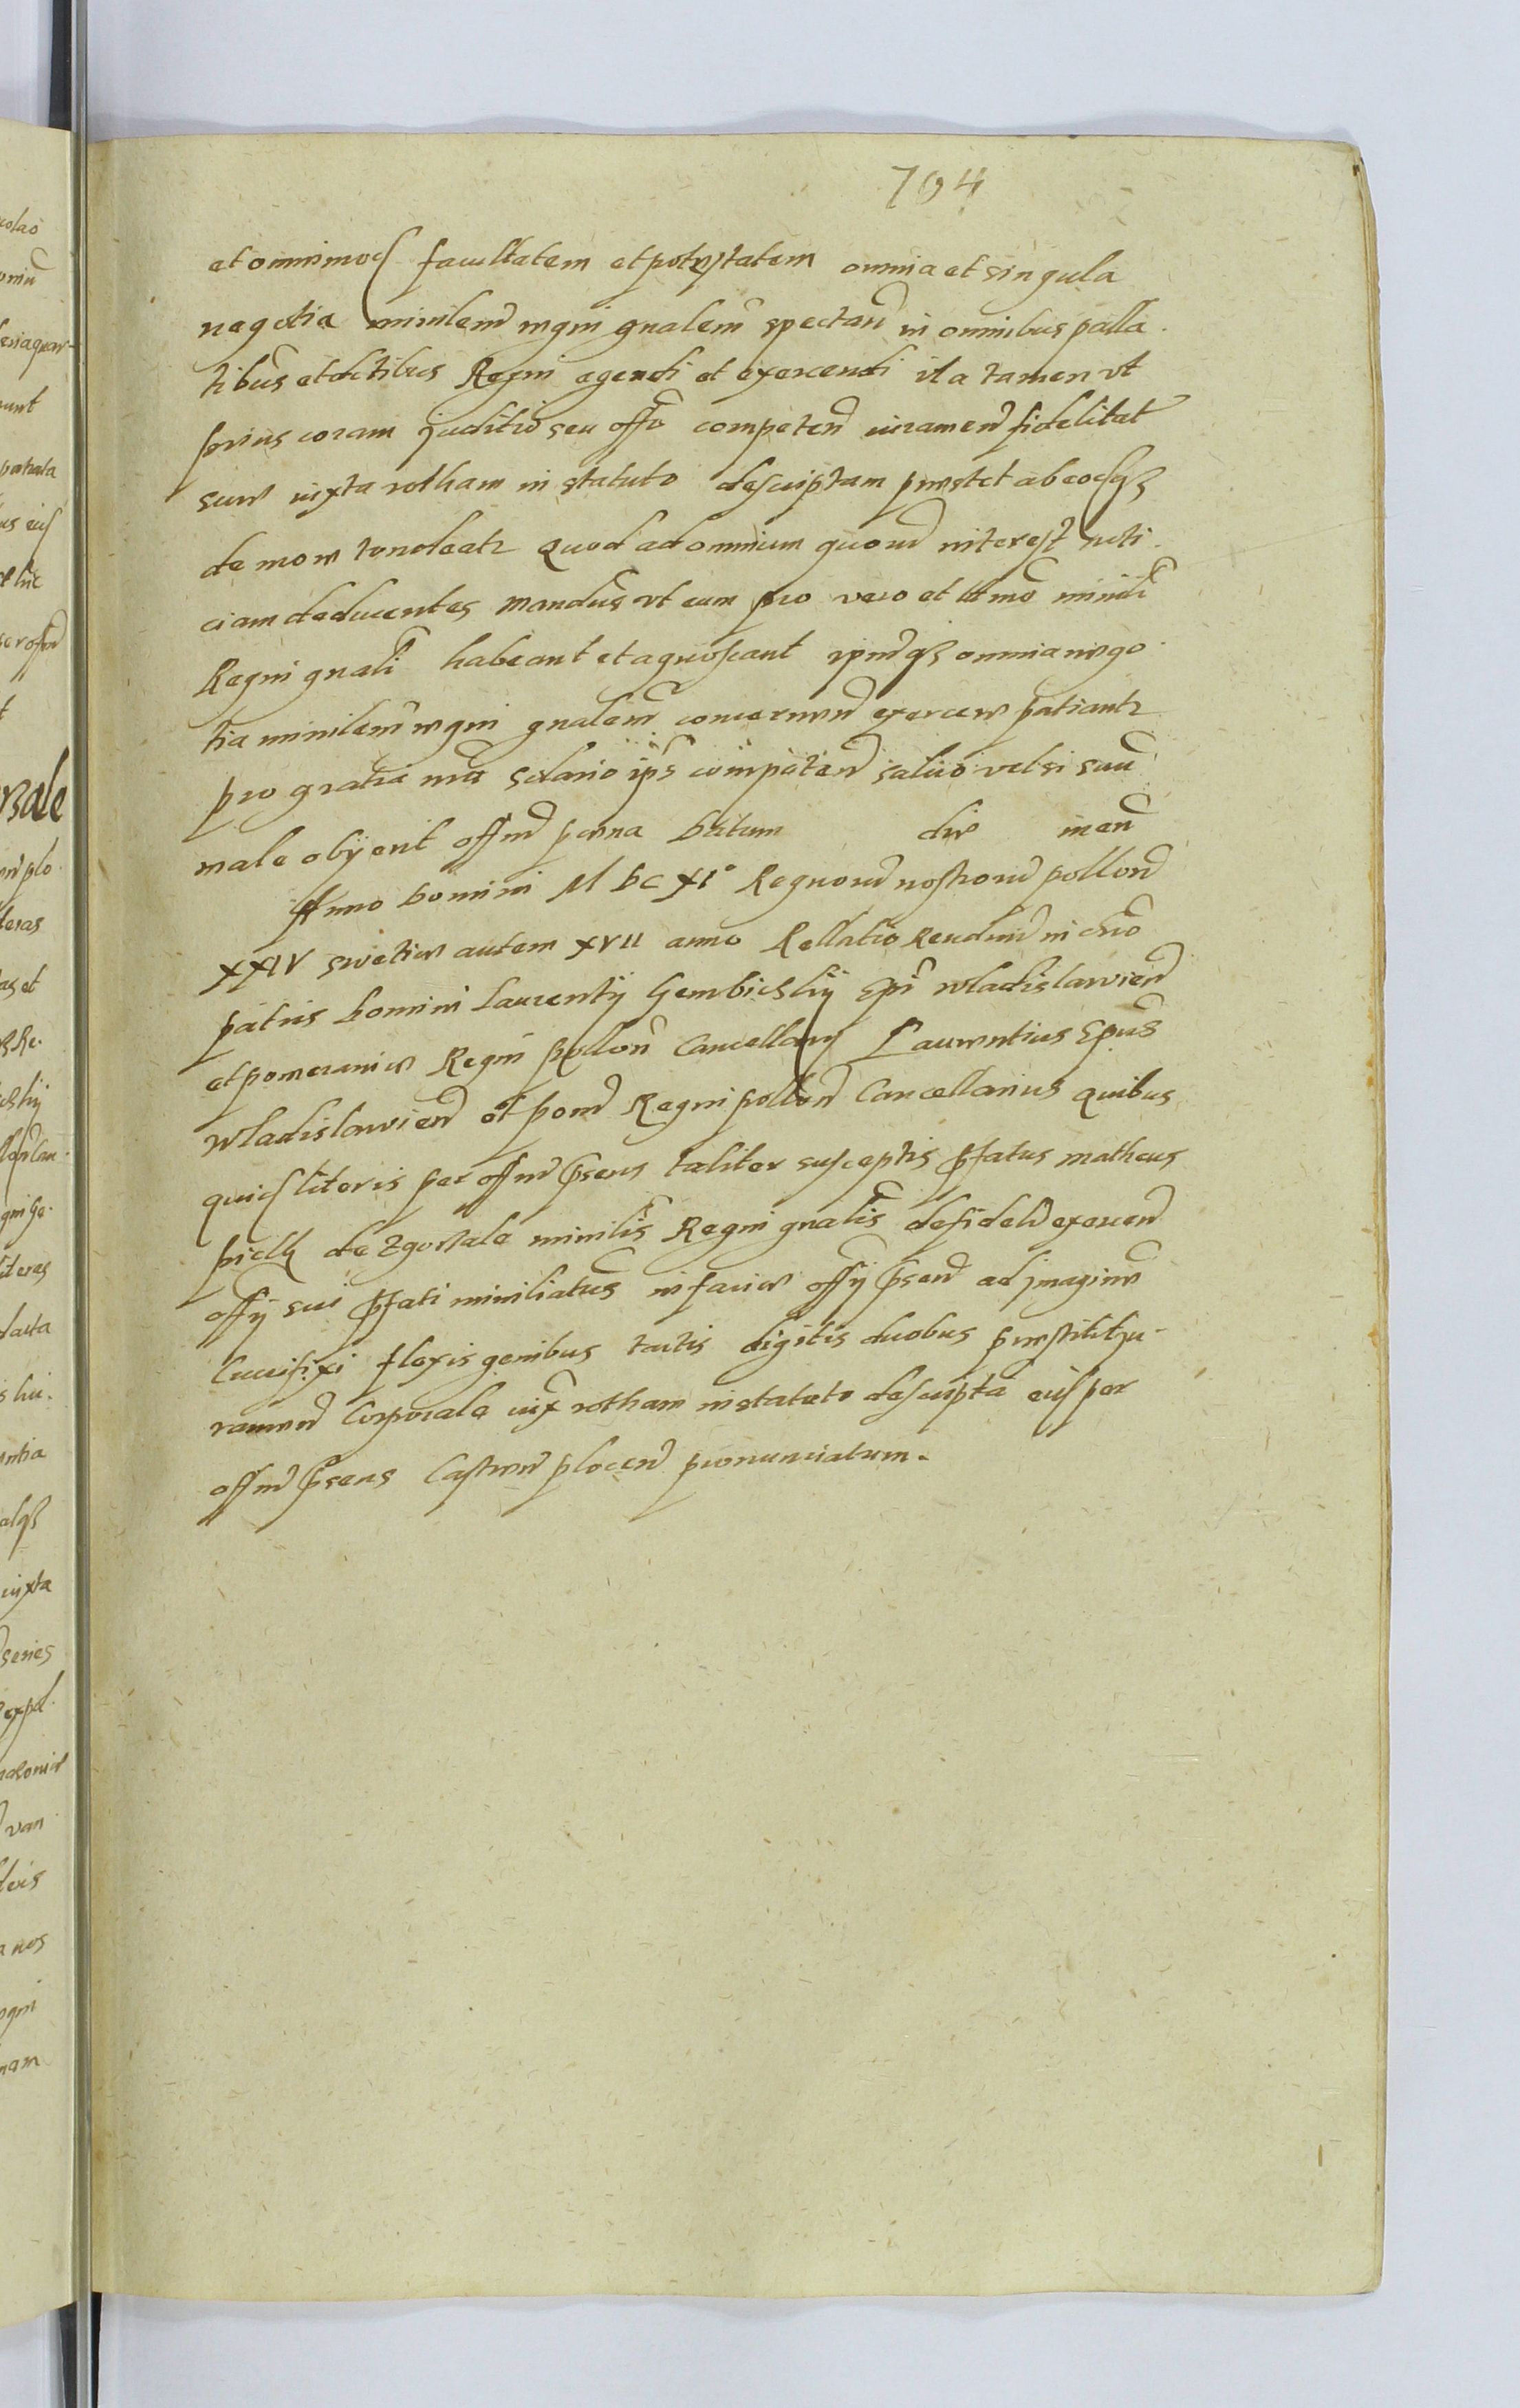 704
et omnimod facultatem et potestatem omnia et singula
negotia minilem regni gnalem spectan in omnibus palla
tibus et actibus Regni agendi et exercendi ita tamen vt
prius coram juditio seu offo competen iuramen fidelitat
suae iuxta rotham in statuto descriptam praestet ab eodqz
de more tondeatr Quod ad omnium quorum interest noti
ciam deducentes mandus vt eum pro vero et ltmo
Regni gnali habeant et agnoscant omnia nego
tia minilem regni gnalem concernen exercere patiantr
pro gratia nra salario ips competen saluo vel si suum
male obyerit offm paena Datum die men
Anno Domini M DC XI° Regnorum nostrorum pollon
XXIV Swetiae autem XVII anno Rellatio Reudmi in Chro
patris Domini Laurentij Gembichky Epi Wladislawien
et pomeraniae Regni pollon Cancellary Laurentius Epus
Wladislawien et pom Regni pollon Cancellarius Quibus
quid literis per offm psens taliter susceptis pfatus matheus
de Zgorzale minilis Regni gnalis de fideli exercen
offy sui pfati miniliatus in facie offy psen ad imaginem
Crucifixi flexis genibus tactis digitis duobus praestitit ju
ramen Corporale iux rotham in statuto descripta eid per
offm psens Castren plocen pronunciatum.